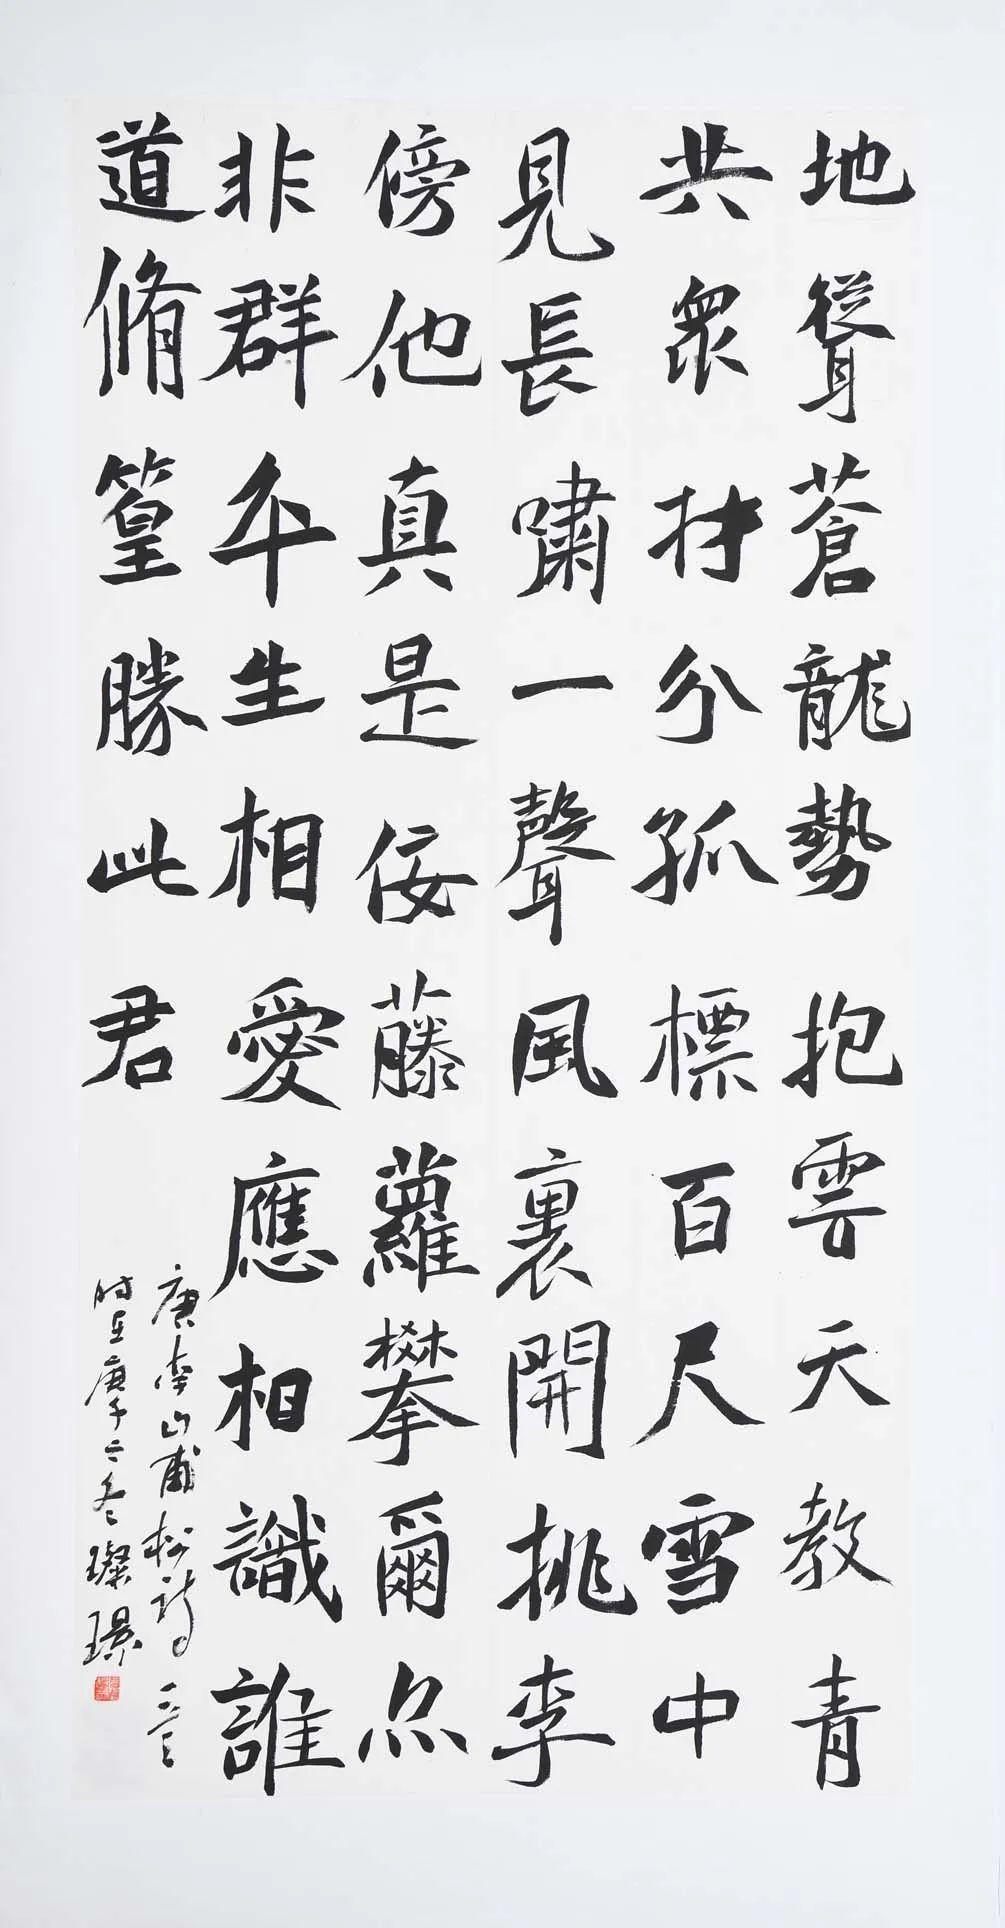 地聳蒼龍勢抱雲天教青
共眾材分孤標百尺雪中
見長嘯一聲風裏開挑李
傍他真是佞藤蘿攀爾亦
非群平生相愛應相識誰
道脩篁勝此君
唐李山甫松詩一首
時在庚子之冬璨璟